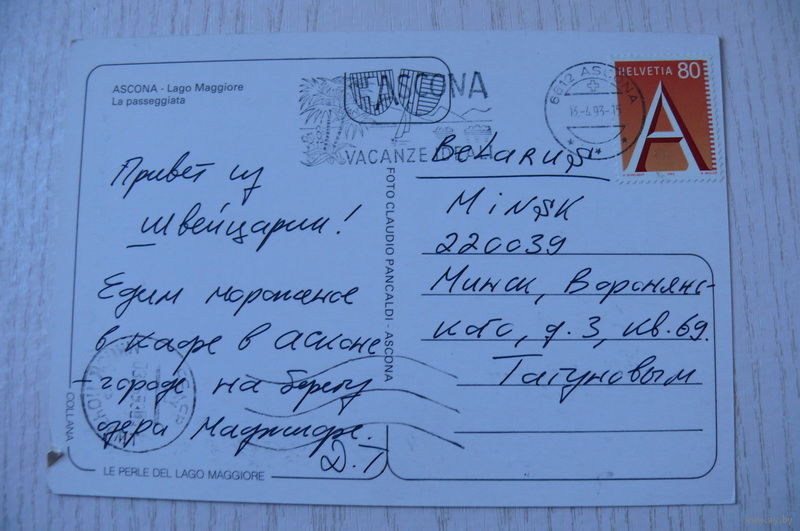 ASCONA - Lago Maggiore
La passeggiata
Привет из
Швейцарии!
Едим мороженое
в кафе в Асконе
- городе на берегу
озера Маджиоре.
Д.Т
COLLANA
LE PERLE DEL LAGO MAGGIORE
FOTO CLAUDIO PANCALDI - ASCONA
ASCONA
VACANZE
6612 ASCONA
13-4.93-
HELVETIA 80
A
Belarus
MiNSK
220039
Минск, Воронянс-
кого, д.3, кв.69.
Тагуновым